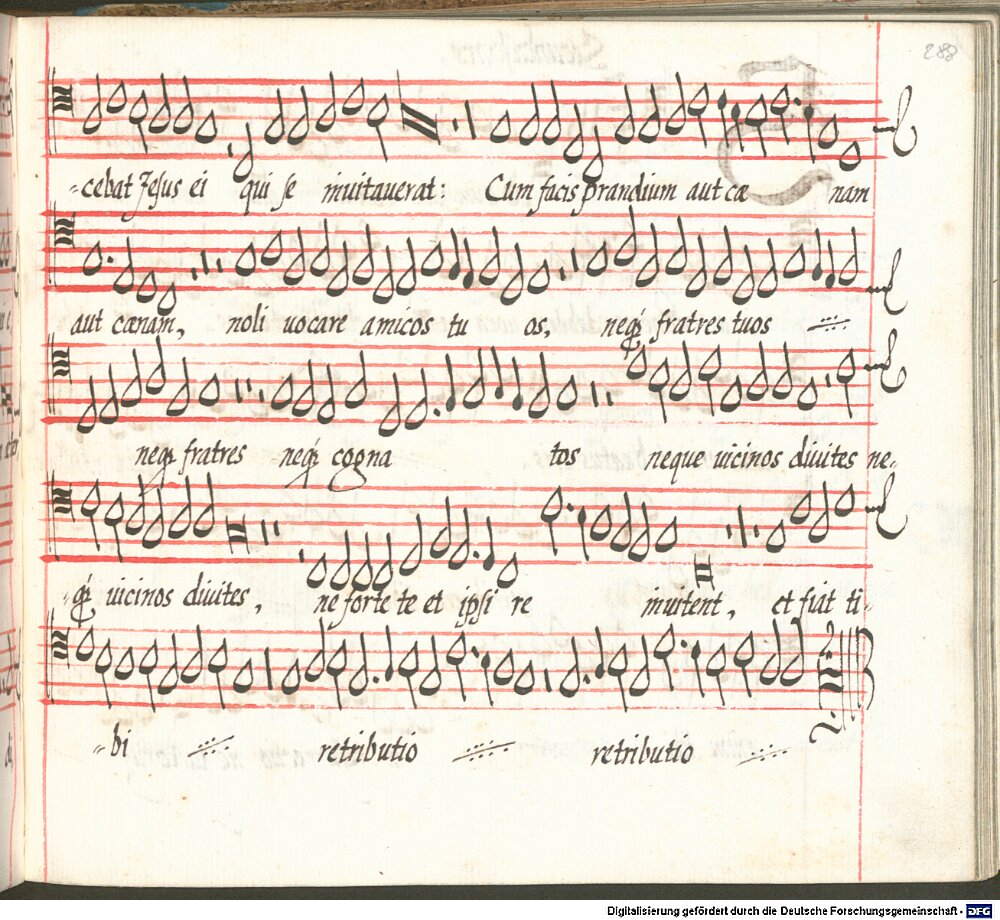 288
-cebat Jesus ei qui se inuitauerat: Cum facis prandium aut cæ nam
aut cænam, noli uocare amicos tu os, neq₃ fratres tuos
neq₃ fratres neq₃ cogna tos neque uicinos diuites ne-
-q₃ uicinos diuites, ne forte te et ipsi re inuitent, et fiat ti-
-bi retributio retributio
Digitalisierung gefördert durch die Deutsche Forschungsgemeinschaft - DFG